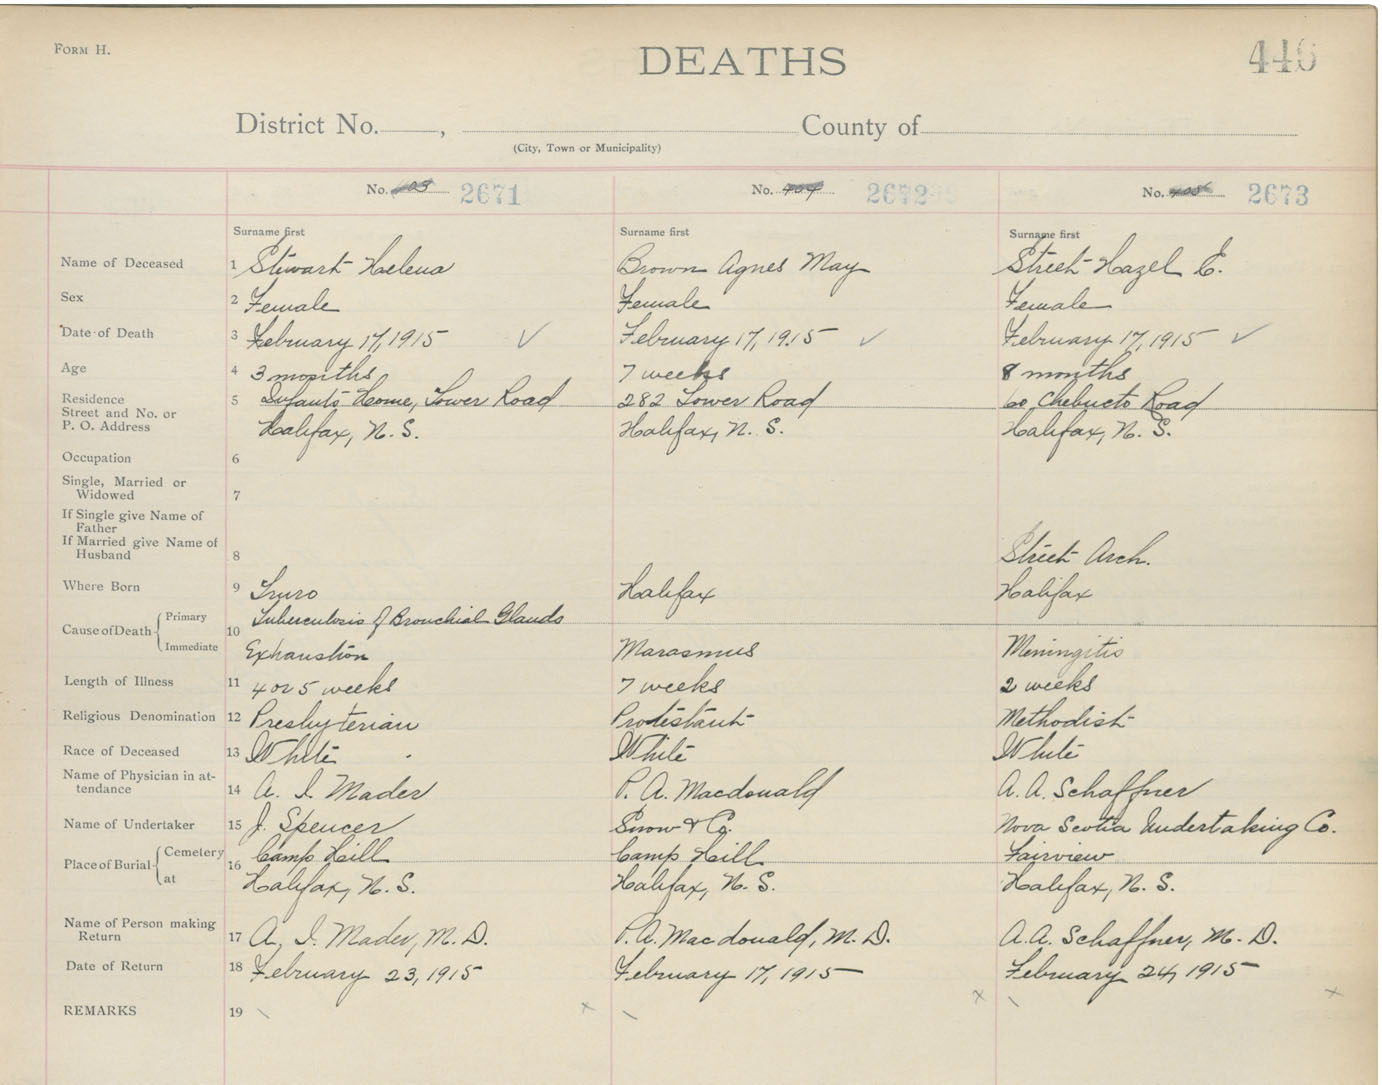 FORM H.
DEATHS
446
District No. , County of
(City, Town or Municipality)
No. 2671 No. 2672 No. 2673
Surname first Surname first Surname first
Name of Deceased 1 Stewart Helena Brown Agnes May Street Hazel E.
Sex 2 Female Female Female
Date of Death 3 February 17, 1915 February 17, 1915 February 17, 1915
Age 4 3 months 7 weeks 8 months
Residence Street and No. or 5 Infants Home, Tower Road 282 Tower Road 60 Chebucto Road
P. O. Address Halifax, N. S. Halifax, N. S. Halifax, N. S.
Occupation 6
Single, Married or
Widowed 7
If Single give Name of
Father
If Married give Name of
Husband 8 Street Arch.
Where Born 9 Truro Halifax Halifax
Cause of Death Primary 10 Tuberculosis of Bronchial Glands
Immediate Exhaustion Marasmus Meningitis
Length of Illness 11 4 or 5 weeks 7 weeks 2 weeks
Religious Denomination 12 Presbyterian Protestant Methodist
Race of Deceased 13 White White White
Name of Physician in at-
tendance 14 A. I. Mader P. A. Macdonald A. A. Schaffner
Name of Undertaker 15 J. Spencer Snow & Co. Nova Scotia Undertaking Co.
Place of Burial Cemetery 16 Camp Hill Camp Hill Fairview
at Halifax, N. S. Halifax, N. S. Halifax, N. S.
Name of Person making
Return 17 A. I. Mader, M. D. P. A. Macdonald, M. D. A. A. Schaffner, M. D.
Date of Return 18 February 23, 1915 February 17, 1915 February 24, 1915
REMARKS 19